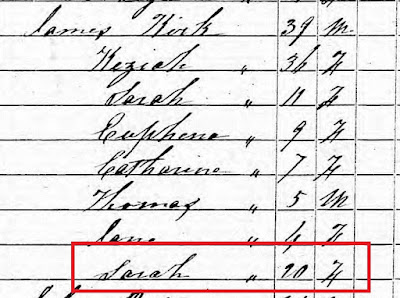 James Kirk 39 M
Keziah " 36 F
Sarah " 11 F
Euphene " 9 F
Catharine " 7 F
Thomas " 5 M
Jane " 4 F
Sarah " 20 F